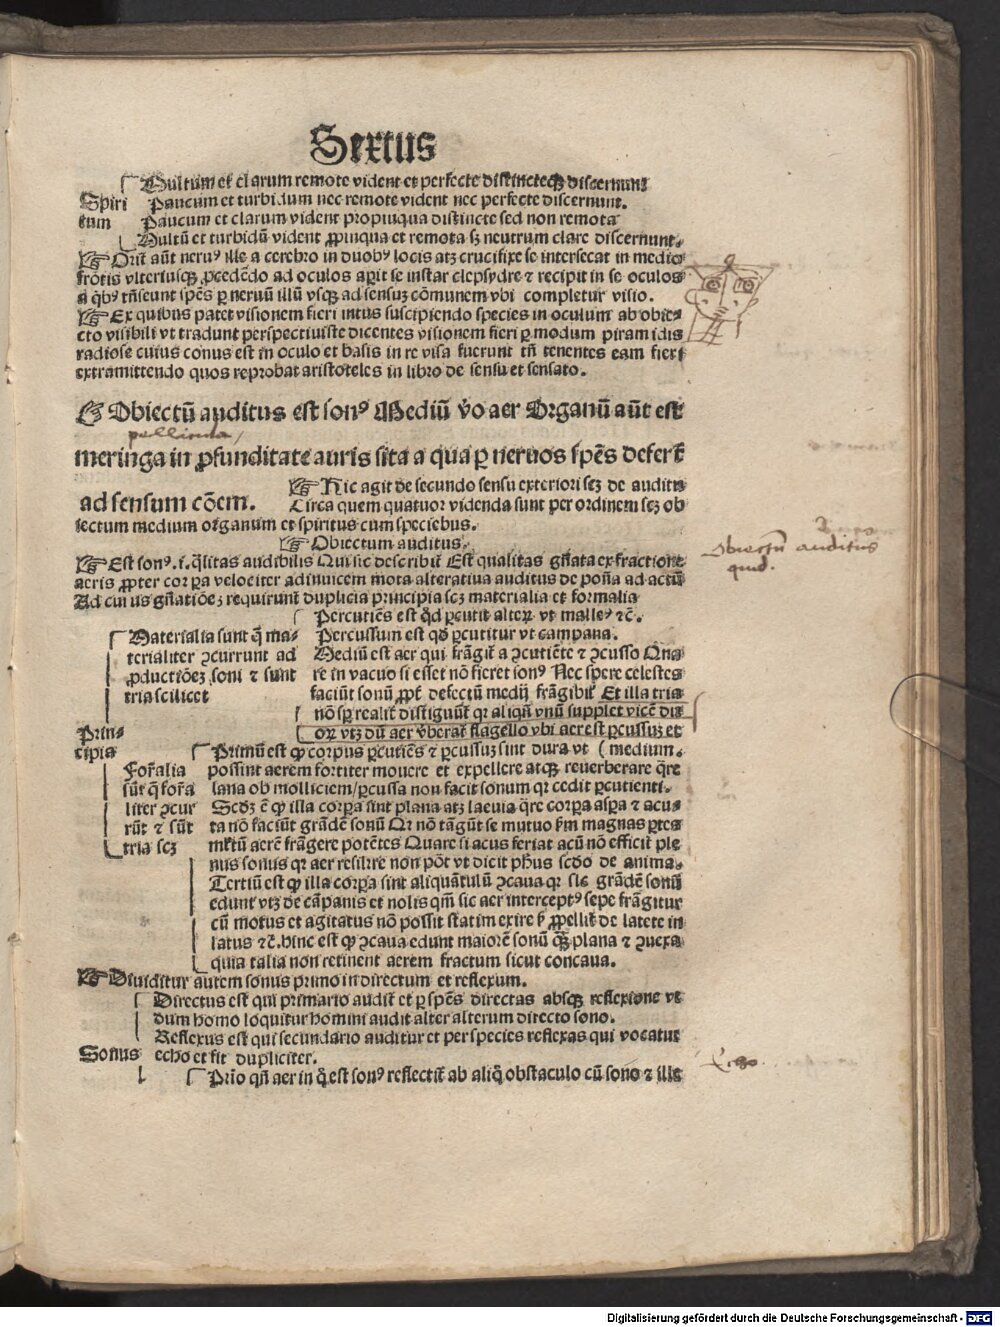 Sextus
Multum et clarum remote vident et perfecte distincteqꝫ discernunt
Spiri Paucum et turbidum nec remote vident nec perfecte discernunt.
tum Paucum et clarum vident propinqua distincte sed non remota
Multū et turbidū vident ꝓpinqua et remota sꝫ neutrum clare discernunt.
☞ Orit᷑ aūt neruꝰ ille a cerebro in duobꝰ locis atqꝫ crucifixe se intersecat in medio
frōtis vlteriusqꝫ ꝓcedēdo ad oculos aꝑit se instar clepsydre ⁊ recipit in se oculos
a q̇bꝰ trāseunt spēs ꝑ neruū illū vsqꝫ ad sensuꝫ cōmunem vbi completur visio.
☞ Ex quibus patet visionem fieri intus suscipiendo species in oculum ab obie⸗
cto visibili vt tradunt perspectiuiste dicentes visionem fieri ꝑ modum piramidis
radiose cuius conus est in oculo et basis in re visa fuerunt tn̄ tenentes eam fieri
extramittendo quos reprobat aristoteles in libro de sensu et sensato.
☞ Obiectū auditus est sonꝰ Mediū v̄o aer Organū aūt est
meringa in ꝓfunditate auris sita a qua ꝑ neruos spēs defert᷑
ad sensum cōem. ☞ Hic agit de secundo sensu exteriori scꝫ de auditu
Circa quem quatuor videnda sunt per ordinem scꝫ ob
iectum medium organum et spiritus cum speciebus.
☞ Obiectum auditus.
Obiectū auditus
quid.
☞ Est sonꝰ .i. q̄litas audibilis Qui sic describit᷑ Est qualitas gn̄ata ex fractione
aeris ꝓpter corꝑa velociter adinuicem mota alteratiua auditus de potn̄a ad actū
Ad cuius gn̄atiōeꝫ requirunt᷑ duplicia principia scꝫ materialia et formalia
Percutiēs est qd̄ ꝑcutit alterꝫ vt malleꝰ ⁊c̄.
Materialia sunt q̄ ma⸗ Percussum est qd̄ ꝑcutitur vt campana.
terialiter ꝯcurrunt ad Mediū est aer qui frāgit᷑ a ꝑcutiēte ⁊ ꝑcusso Qua
ꝓductiōeꝫ soni ⁊ sunt re in vacuo si esset nō fieret sonꝰ Nec spere celestes
tria scilicet faciūt sonū ꝓpt᷑ defectū medij frāgibil᷑ Et illa tria
nō sꝑ realit᷑ distiguūt᷑ qꝛ aliqn̄ vnū supplet vicē du
Prin⸗ orꝫ vtꝫ dū aer v̄berat᷑ flagello vbi aer est ꝑcussuꝫ et
cipia Primū est ꝙ corpus ꝑcutiēs ⁊ ꝑcussuꝫ sint dura vt ( medium.
For̄alia possint aerem fortiter mouere et expellere atqꝫ reuerberare q̄re
sūt q̄ for̄a lana ob molliciem/ꝑcussa non facit sonum qꝛ cedit ꝑcutienti.
liter ꝯcur Scd̄ꝫ ē ꝙ illa corꝑa sint plana atqꝫ laeuia q̄re corꝑa aspa ⁊ acu⸗
rūt ⁊ sūt ta nō faciūt grādē sonū Qꝛ nō tāgūt se mutuo ẜm magnas ꝑtes
tria scꝫ aerē frāgere potētes Quare si acus feriat acū nō efficit ple
nus sonus qꝛ aer resilire non pōt vt dicit pħus scd̄o de anima.
Tertiū est ꝙ illa corꝑa sint aliquātulū ꝯcaua qꝛ sic grādē sonū
edunt vtꝫ de cāpanis et nolis qm̄ sic aer interceptꝰ sepe frāgitur
cū motus et agitatus nō possit statim exire sꝫ ꝓpellit᷑ de latere in
latus ⁊c̄. hinc est ꝙ ꝯcaua edunt maiorē sonū qꝫ̄ plana ⁊ ꝯuexa
quia talia non retinent aerem fractum sicut concaua.
☞ Diuiditur autem sonus primo in directum et reflexum.
Directus est qui primario audit᷑ et ꝑ spēs directas absqꝫ reflexione vt
dum homo loquitur homini audit alter alterum directo sono.
Reflexus est qui secundario auditur et per species reflexas qui vocatur
Sonus echo et fit dupliciter.
Prīo qn̄ aer in q̊ est sonꝰ reflectit᷑ ab aliq̊ obstaculo cū sono ⁊ ille
Digitalisierung gefördert durch die Deutsche Forschungsgemeinschaft - DFG